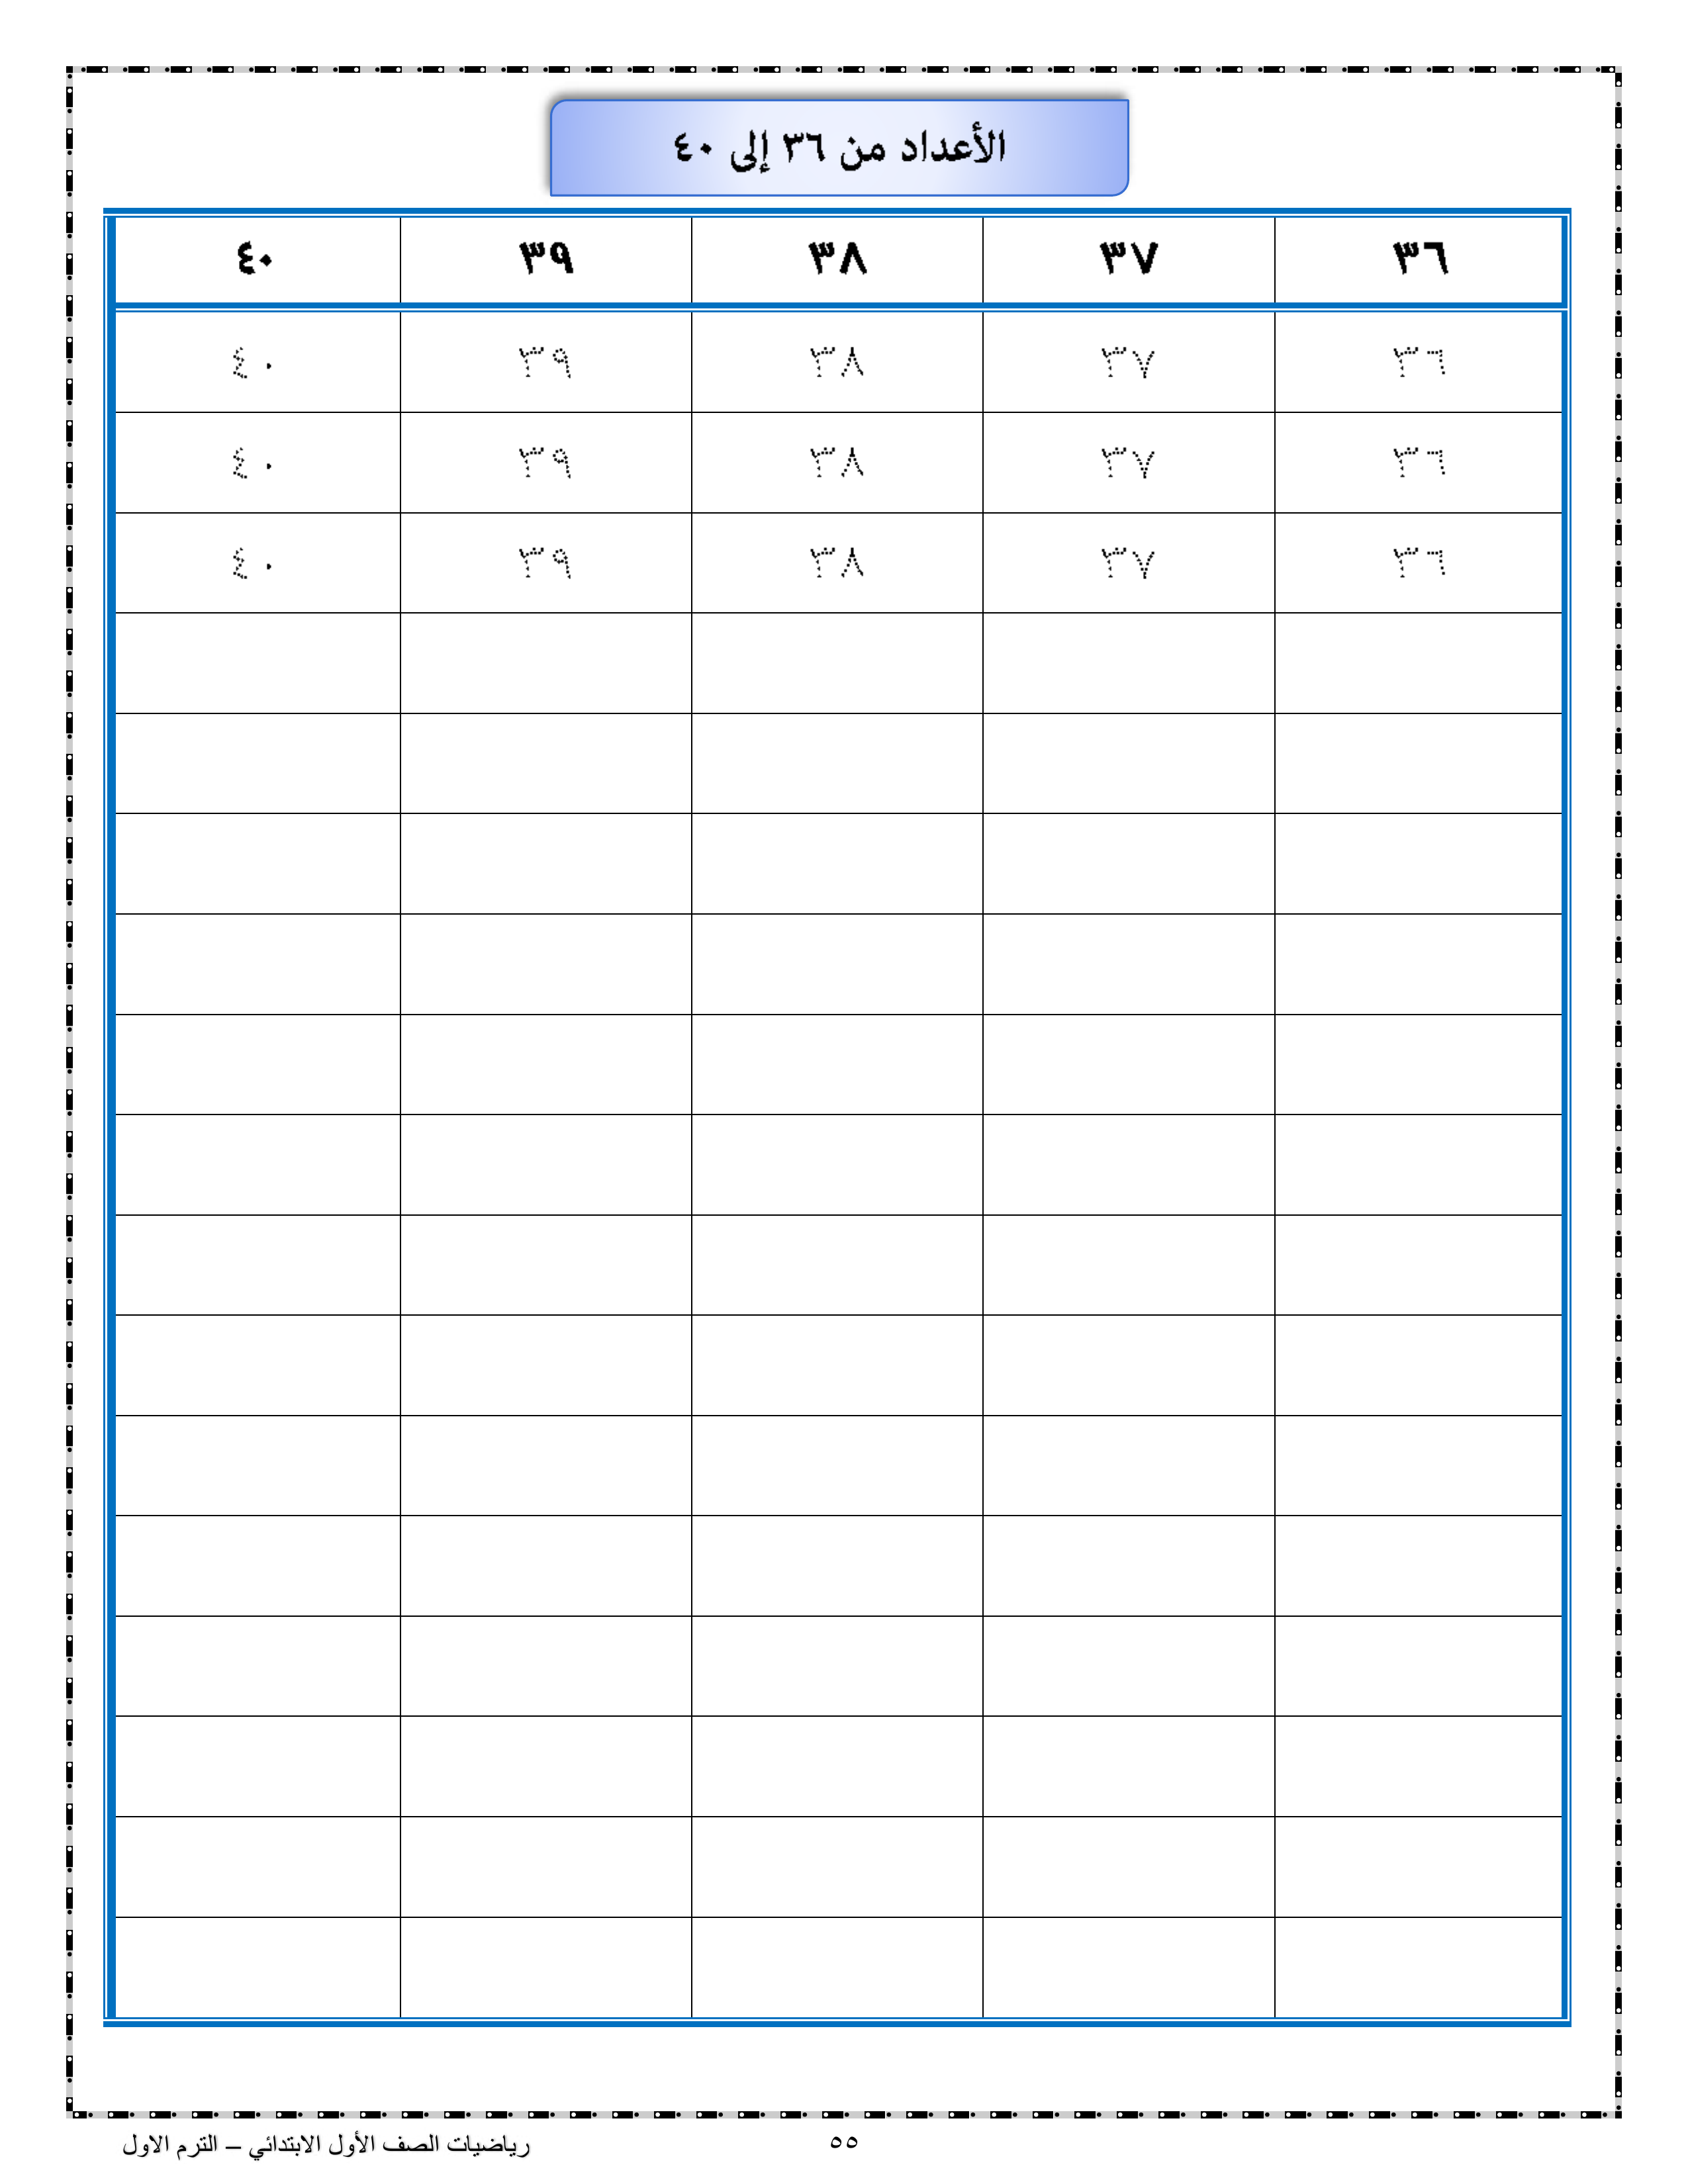 الأعداد من ٣٦ إلى ٤٠
٣٦ ٣٧ ٣٨ ٣٩ ٤٠
٣٦ ٣٧ ٣٨ ٣٩ ٤٠
٣٦ ٣٧ ٣٨ ٣٩ ٤٠
٣٦ ٣٧ ٣٨ ٣٩ ٤٠
٥٥
رياضيات الصف الأول الابتدائي – الترم الاول